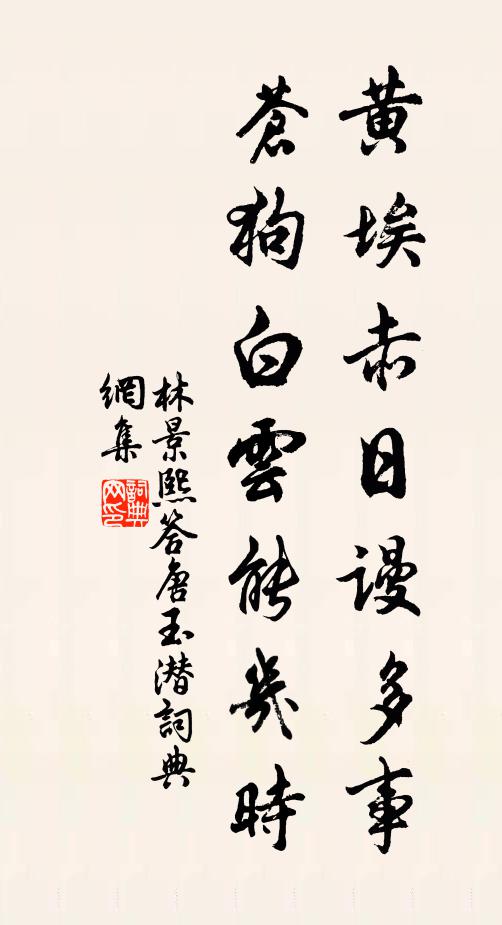 黄埃赤日謾多事
蒼狗白雲能幾時
林景熙答唐玉潜詞典
網集
詞典
网印